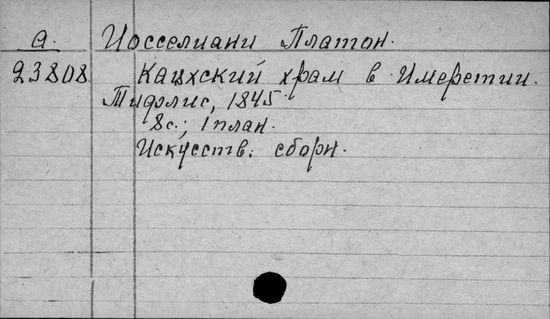 a. Иосселиани Платон.
23808 Кацхский храм в Имеретии.
Тифлис, 1845.
8с.; 1 план.
Искусств. сборн.